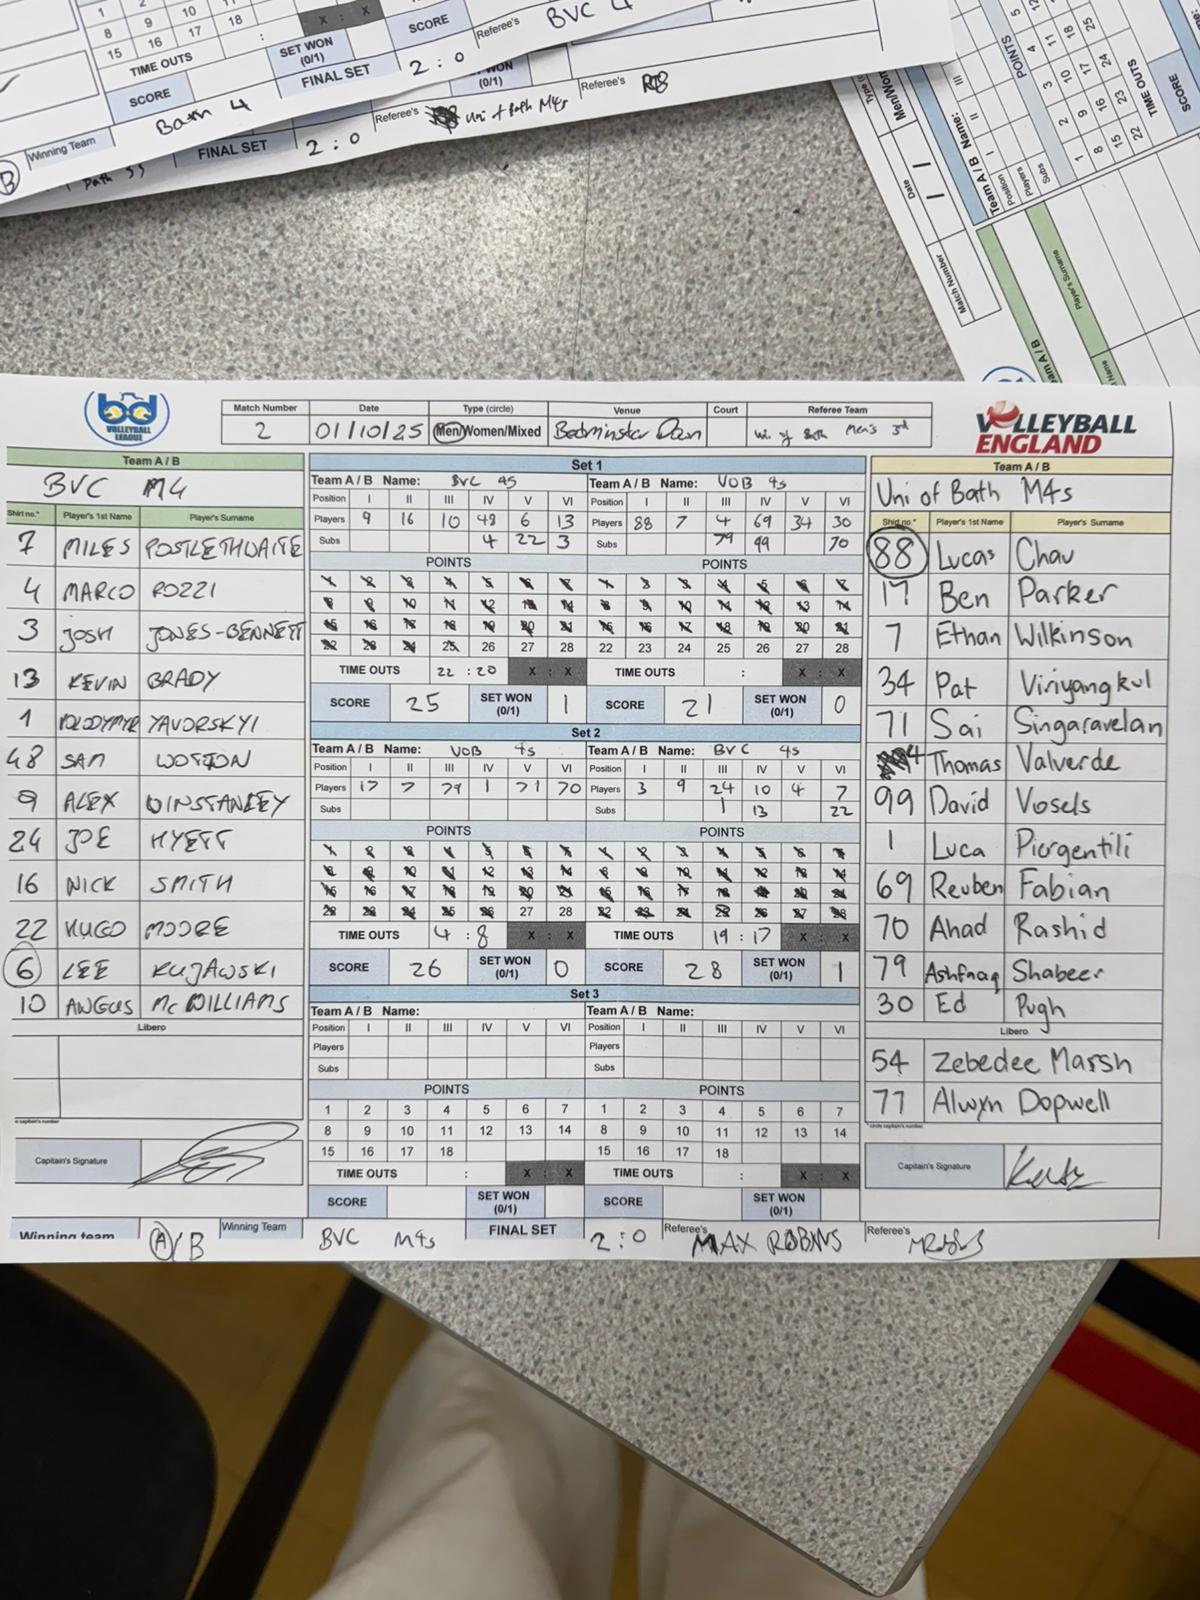 TIME OUTS
SCORE
SET WON (0/1)
SCORE
Referee's
BVC 4
Winning Team
Bath 4
FINAL SET
2:0
FINAL SET
2:0
Referee's
Uni of Bath M4s
Referee's
Match Number
Date
Men/Wom
Team A / B Name:
Position I II III
Players
Subs
POINTS
TIME OUTS
SCORE
Team A / B
Player's Surname
VOLLEYBALL LEAGUE
Match Number Date Type (circle) Venue Court Referee Team
2 01/10/25 Men/Women/Mixed Uni of Bath Men's 3rd
VOLLEYBALL ENGLAND
Team A / B
BVC M4
Shirt no.* Player's 1st Name Player's Surname
7 MILES POSTLETHWAITE
4 MARCO ROZZI
3 JOSH JONES-BENNETT
13 KEVIN BRADY
1 VOLODYMYR YAVORSKYI
48 SAM
9 ALEX WINSTANLEY
24 JOE HYETT
16 NICK SMITH
22 HUGO MOORE
6 LEE KUJAWSKI
10 ANGUS McWILLIAMS
Libero
Captain's Signature
Set 1
Team A / B Name: BVC 4s Team A / B Name: UOB 4s
Position I II III IV V VI Position I II III IV V VI
Players 9 16 10 48 6 13 Players 88 7 4 69 34 30
Subs 4 22 3 Subs 79 99 70
POINTS POINTS
1 2 3 4 5 6 7 1 2 3 4 5 6 7
8 9 10 11 12 13 14 8 9 10 11 12 13 14
15 16 17 18 19 20 21 15 16 17 18 19 20 21
22 23 24 25 26 27 28 22 23 24 25 26 27 28
TIME OUTS 22 : 20 X : X TIME OUTS : X : X
SCORE 25 SET WON (0/1) 1 SCORE 21 SET WON (0/1) 0
Set 2
Team A / B Name: UOB 4s Team A / B Name: BVC 4s
Position I II III IV V VI Position I II III IV V VI
Players 17 7 79 1 71 70 Players 3 9 24 10 4 7
Subs Subs 1 13 22
POINTS POINTS
1 2 3 4 5 6 7 1 2 3 4 5 6 7
8 9 10 11 12 13 14 8 9 10 11 12 13 14
15 16 17 18 19 20 21 15 16 17 18 19 20 21
22 23 24 25 26 27 28 22 23 24 25 26 27 28
TIME OUTS 4 : 8 X : X TIME OUTS 19 : 17 X : X
SCORE 26 SET WON (0/1) 0 SCORE 28 SET WON (0/1) 1
Set 3
Team A / B Name: Team A / B Name:
Position I II III IV V VI Position I II III IV V VI
Players Players
Subs Subs
POINTS POINTS
1 2 3 4 5 6 7 1 2 3 4 5 6 7
8 9 10 11 12 13 14 8 9 10 11 12 13 14
15 16 17 18 15 16 17 18
TIME OUTS : X : X TIME OUTS : X : X
SCORE SET WON (0/1) SCORE SET WON (0/1)
Team A / B
Uni of Bath M4s
Shirt no.* Player's 1st Name Player's Surname
88 Lucas Chau
17 Ben Parker
7 Ethan Wilkinson
34 Pat Viriyangkul
71 Sai Singaravelan
4 Thomas Valverde
99 David Vosels
1 Luca Piergentili
69 Reuben Fabian
70 Ahad Rashid
79 Ashfnaq Shabeer
30 Ed Pugh
Libero
54 Zebedee Marsh
77 Alwyn Dopwell
Captain's Signature
Winning team A/B Winning Team BVC M4s FINAL SET 2:0 Referee's MAX ROBINS Referee's